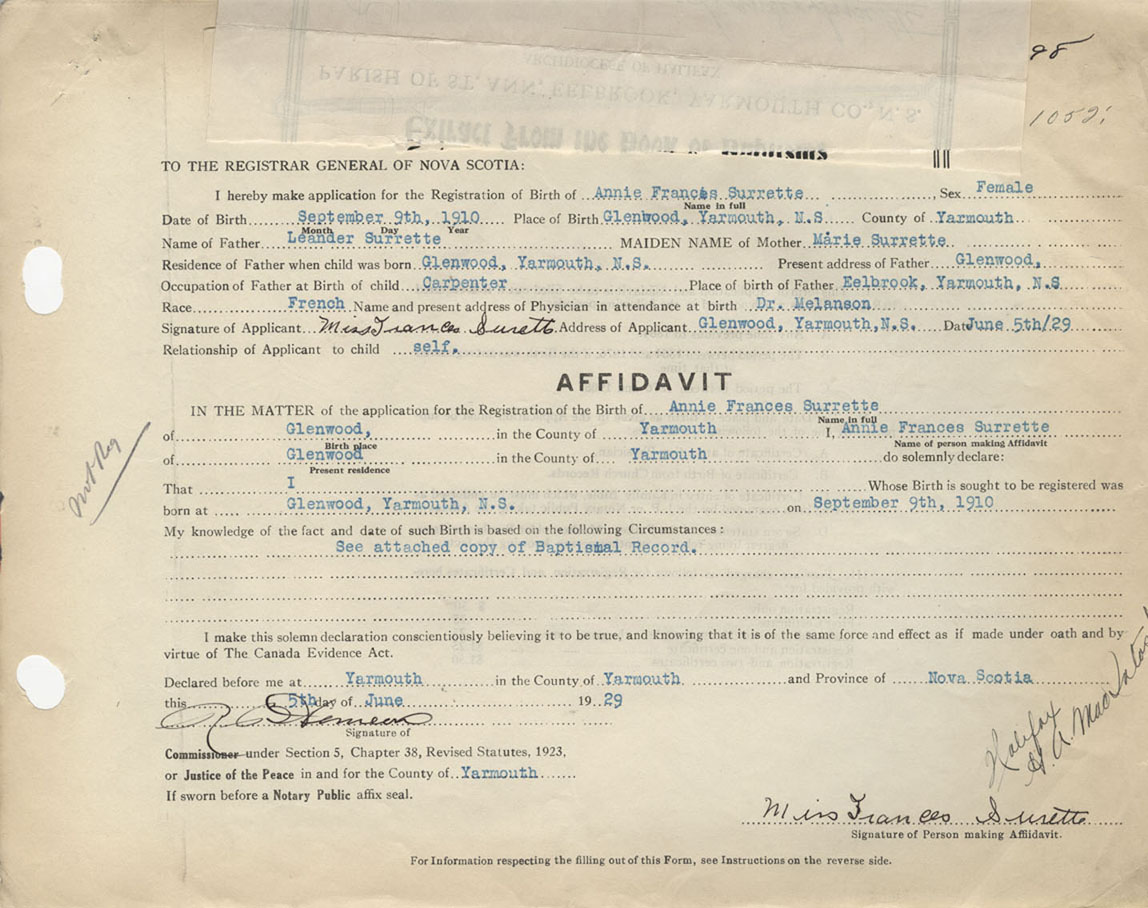 98
ARCHDIOCESE OF HALIFAX
PARISH OF ST. ANN, EELBROOK, YARMOUTH CO., N. S.
Extract From the Book of Baptisms
1052
TO THE REGISTRAR GENERAL OF NOVA SCOTIA:
I hereby make application for the Registration of Birth of Annie Frances Surrette, Sex Female
Name in full
Date of Birth September 9th, 1910 Place of Birth Glenwood, Yarmouth, N.S County of Yarmouth
Month Day Year
Name of Father Leander Surrette MAIDEN NAME of Mother Marie Surrette
Residence of Father when child was born Glenwood, Yarmouth, N.S. Present address of Father Glenwood,
Occupation of Father at Birth of child Carpenter Place of birth of Father Eelbrook, Yarmouth, N.S
Race French Name and present address of Physician in attendance at birth Dr. Melanson
Signature of Applicant Miss Frances Surette Address of Applicant Glenwood, Yarmouth, N.S. Date June 5th/29
Relationship of Applicant to child self.
AFFIDAVIT
IN THE MATTER of the application for the Registration of the Birth of Annie Frances Surrette
Name in full
of Glenwood, in the County of Yarmouth I, Annie Frances Surrette
Birth place Name of person making Affidavit
of Glenwood in the County of Yarmouth do solemnly declare:
Present residence
Not Reg
That I Whose Birth is sought to be registered was
born at Glenwood, Yarmouth, N.S. on September 9th, 1910
My knowledge of the fact and date of such Birth is based on the following Circumstances:
See attached copy of Baptismal Record.
I make this solemn declaration conscientiously believing it to be true, and knowing that it is of the same force and effect as if made under oath and by
virtue of The Canada Evidence Act.
Declared before me at Yarmouth in the County of Yarmouth and Province of Nova Scotia
this 5th day of June 1929
Signature of
Commissioner under Section 5, Chapter 38, Revised Statutes, 1923,
or Justice of the Peace in and for the County of Yarmouth
If sworn before a Notary Public affix seal.
Halifax
Miss Frances Surette
Signature of Person making Affiidavit.
For Information respecting the filling out of this Form, see Instructions on the reverse side.